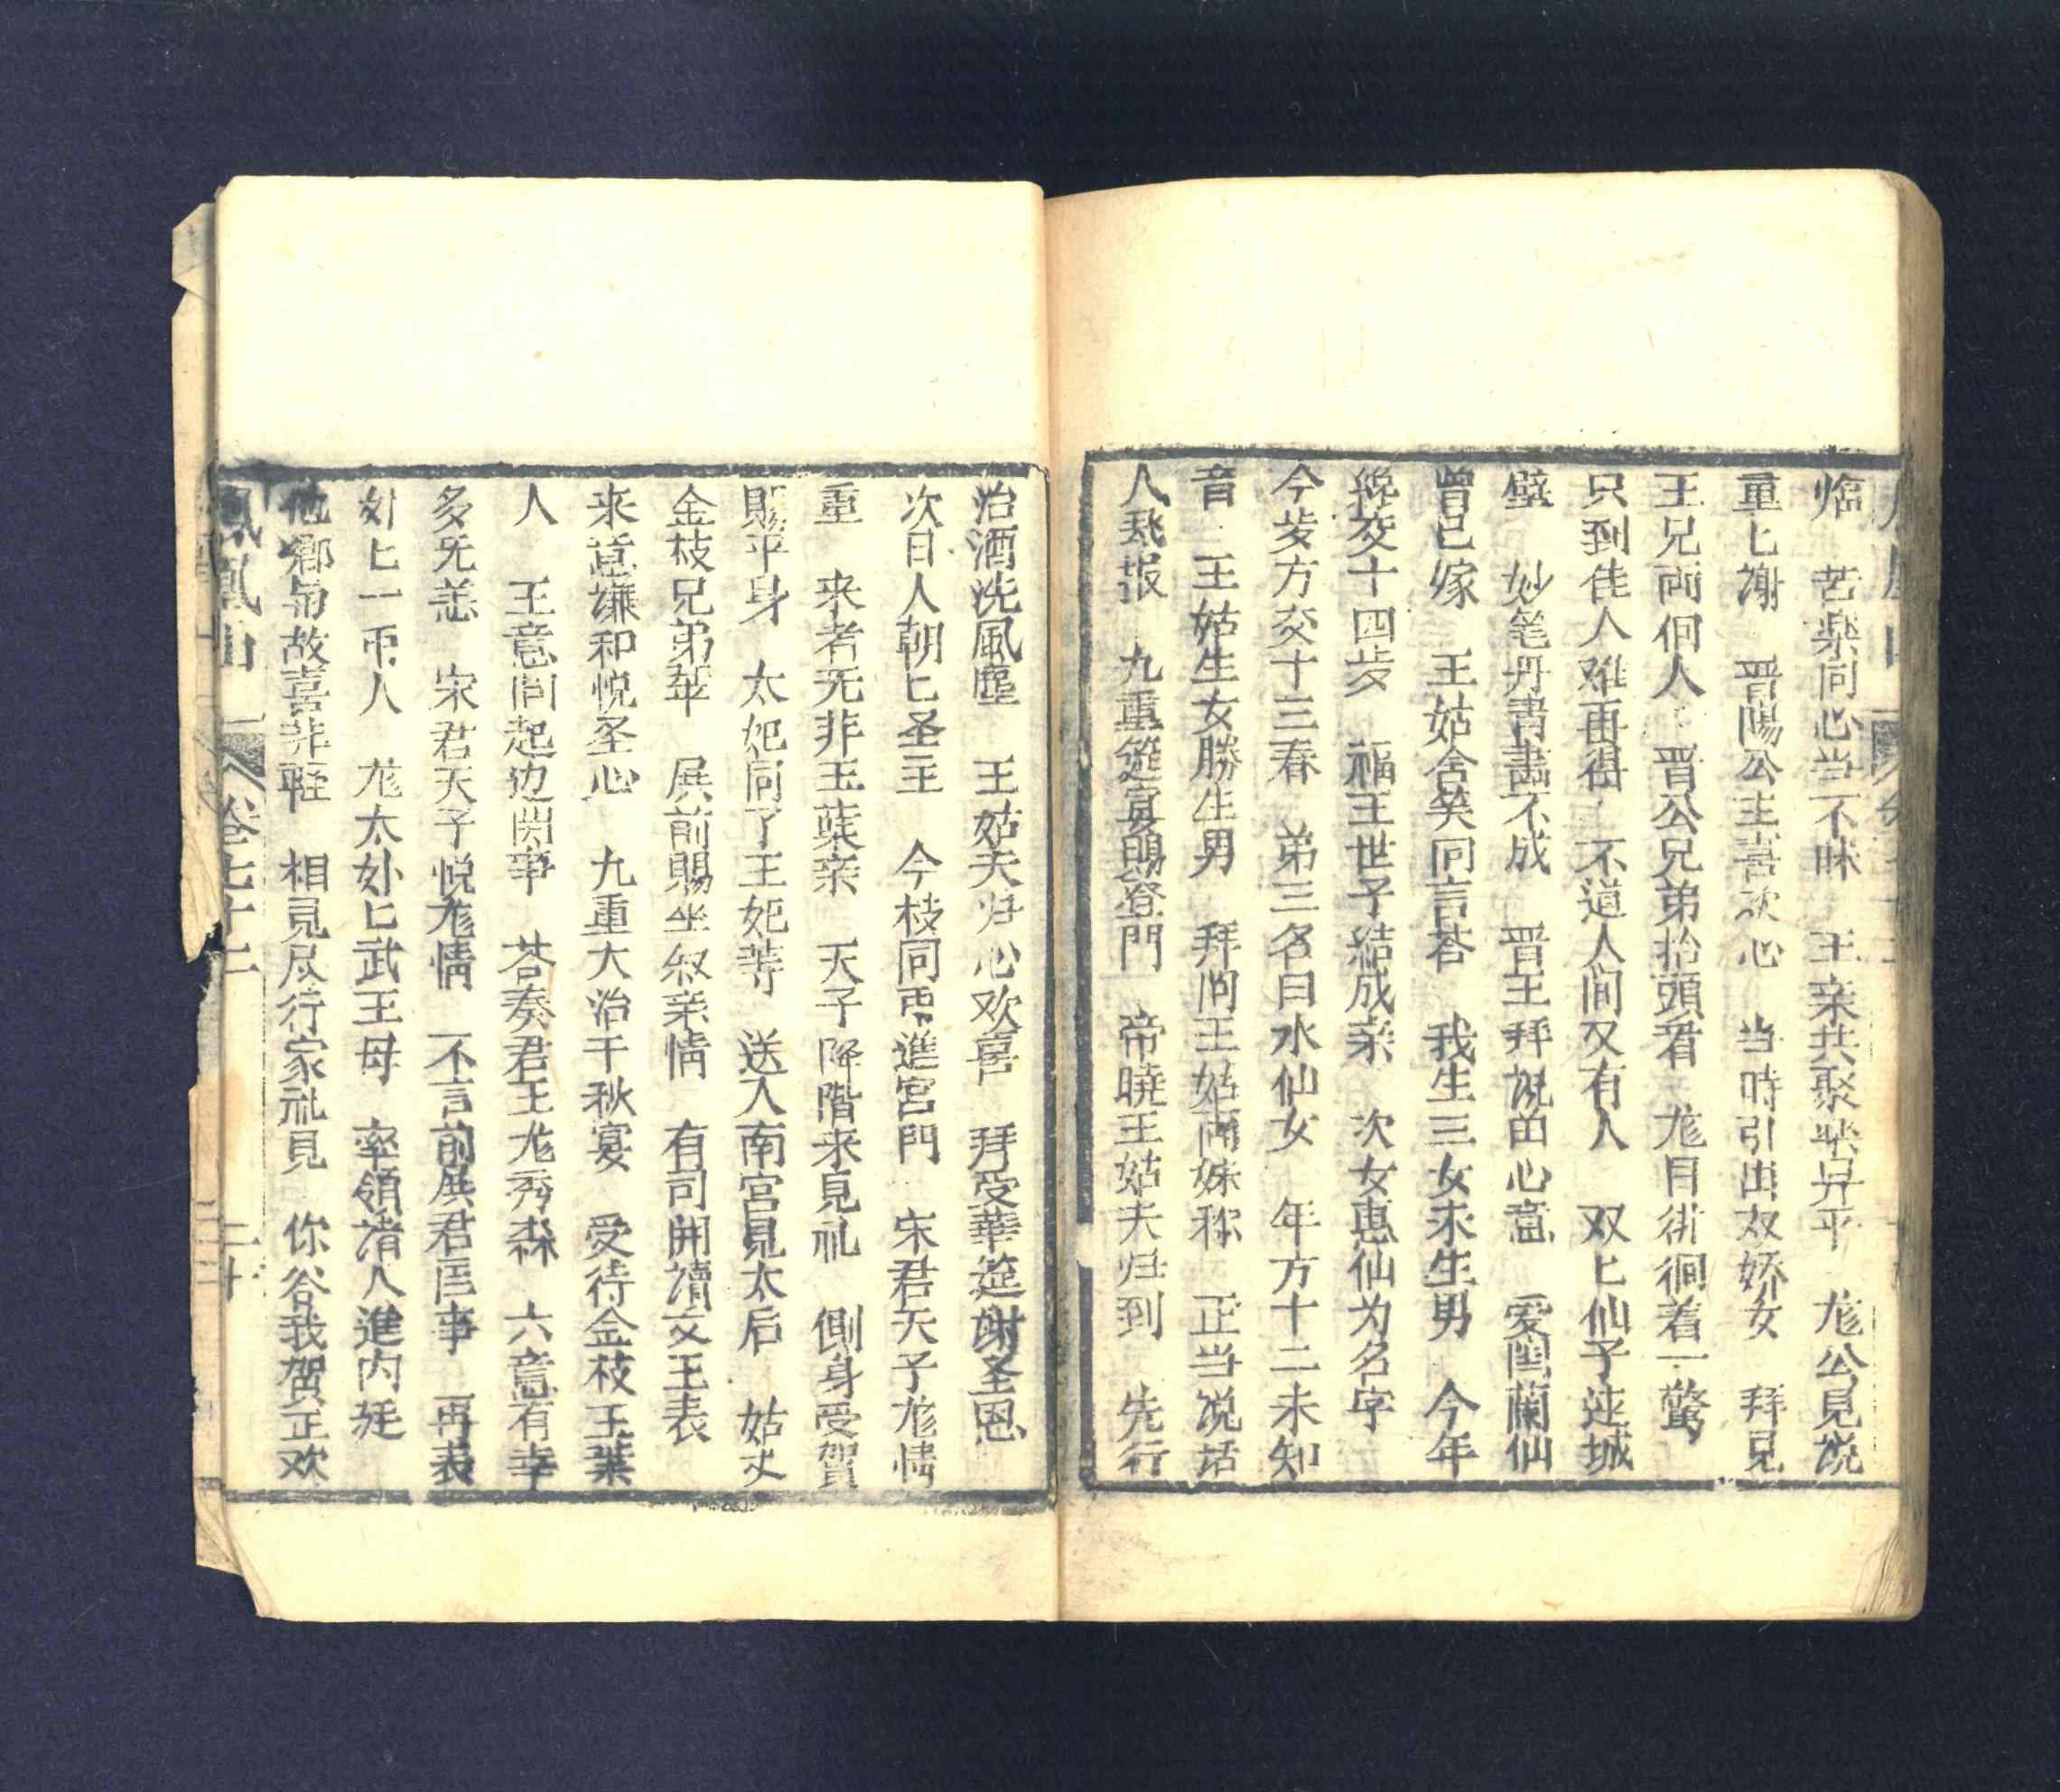 临　苦楽同心当不昧　王亲共聚楽昇平　尨公見说
重匕謝　晋陽公主喜欢心　当時引出双娇女　拜見
王兄両佪人　晋公兄弟抬頭看　尨目徘徊着一驚
只到佳人难再得　不道人间又有人　双匕仙子连城
璧　妙笔丹青畵不成　晋王拜说由心意　爱闺蘭仙
曽已嫁　王姑含笑回言荅　我生三女未生男　今年
纔交十四岁　福王世子結成亲　次女惠仙为名字
今岁方交十三春　弟三名曰水仙女　年方十二未知
音　王姑生女勝生男　拜问王姑両姝称　正当说话
人飛报　九重筵宴賜登門　帝曉王姑夫归到　先行
治酒洗風塵　王姑夫归心欢喜　拜受華筵謝圣恩
次日人朝匕圣主　今枝同両進宫門　宋君天子尨情
重　来者无非玉葉亲　天子降階来見礼　側身受賀
賜平身　太妃同了王妃等　送入南宫見太后　姑丈
金枝兄弟草　展前賜坐叙亲情　有司開讀文王表
来意谦和悦圣心　九重大治千秋宴　受待金枝玉葉
人　王意问起边関事　荅奏君王尨秀森　六意有幸
多无恙　宋君天子悦尨情　不言前展君臣事　再表
外匕一帀人　尨太妙匕武王母　率領渚人進内廷
他郷与故喜非輕　相見尽行家礼見　你谷我賀正欢
鳳凰山　卷七十二　二十